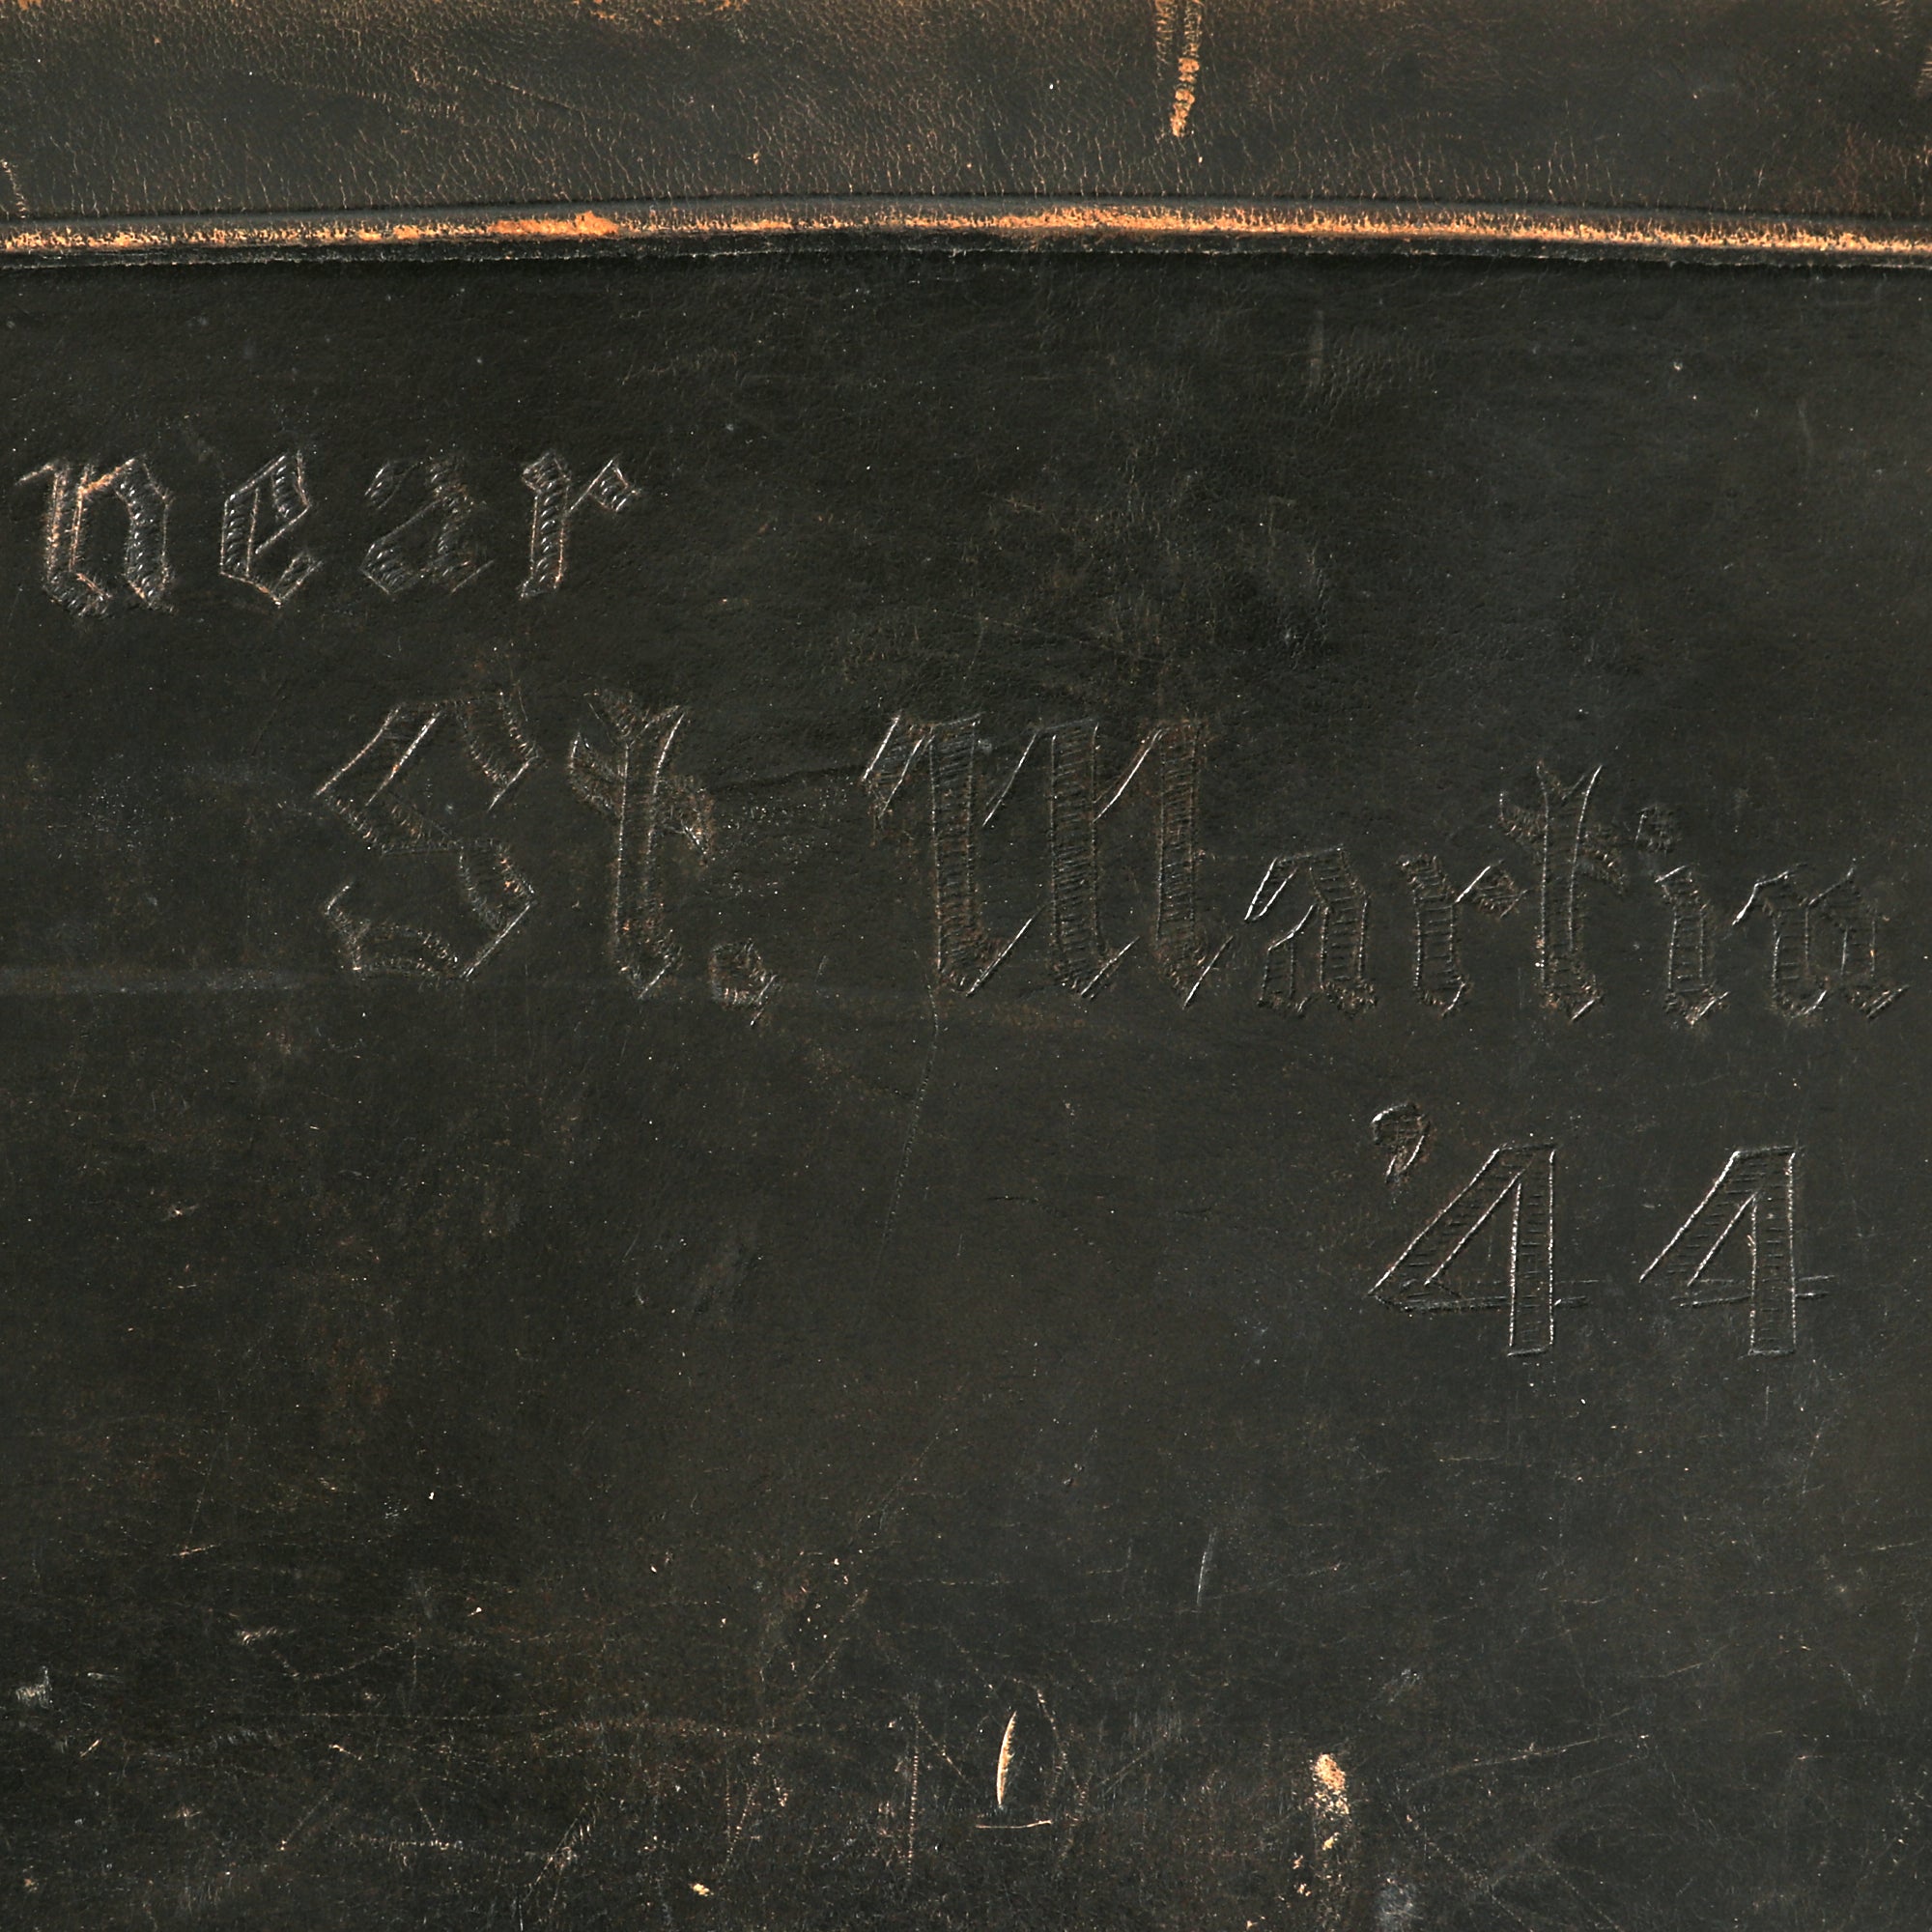 near
St. Martin
’44